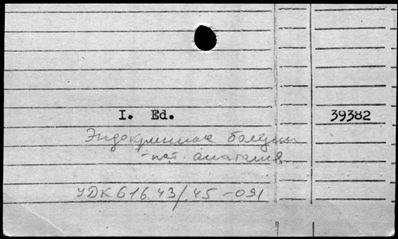 I. Ed. 39382
Эндокринные болезни
- пат. анатомия
УДК 616.43/.45-091